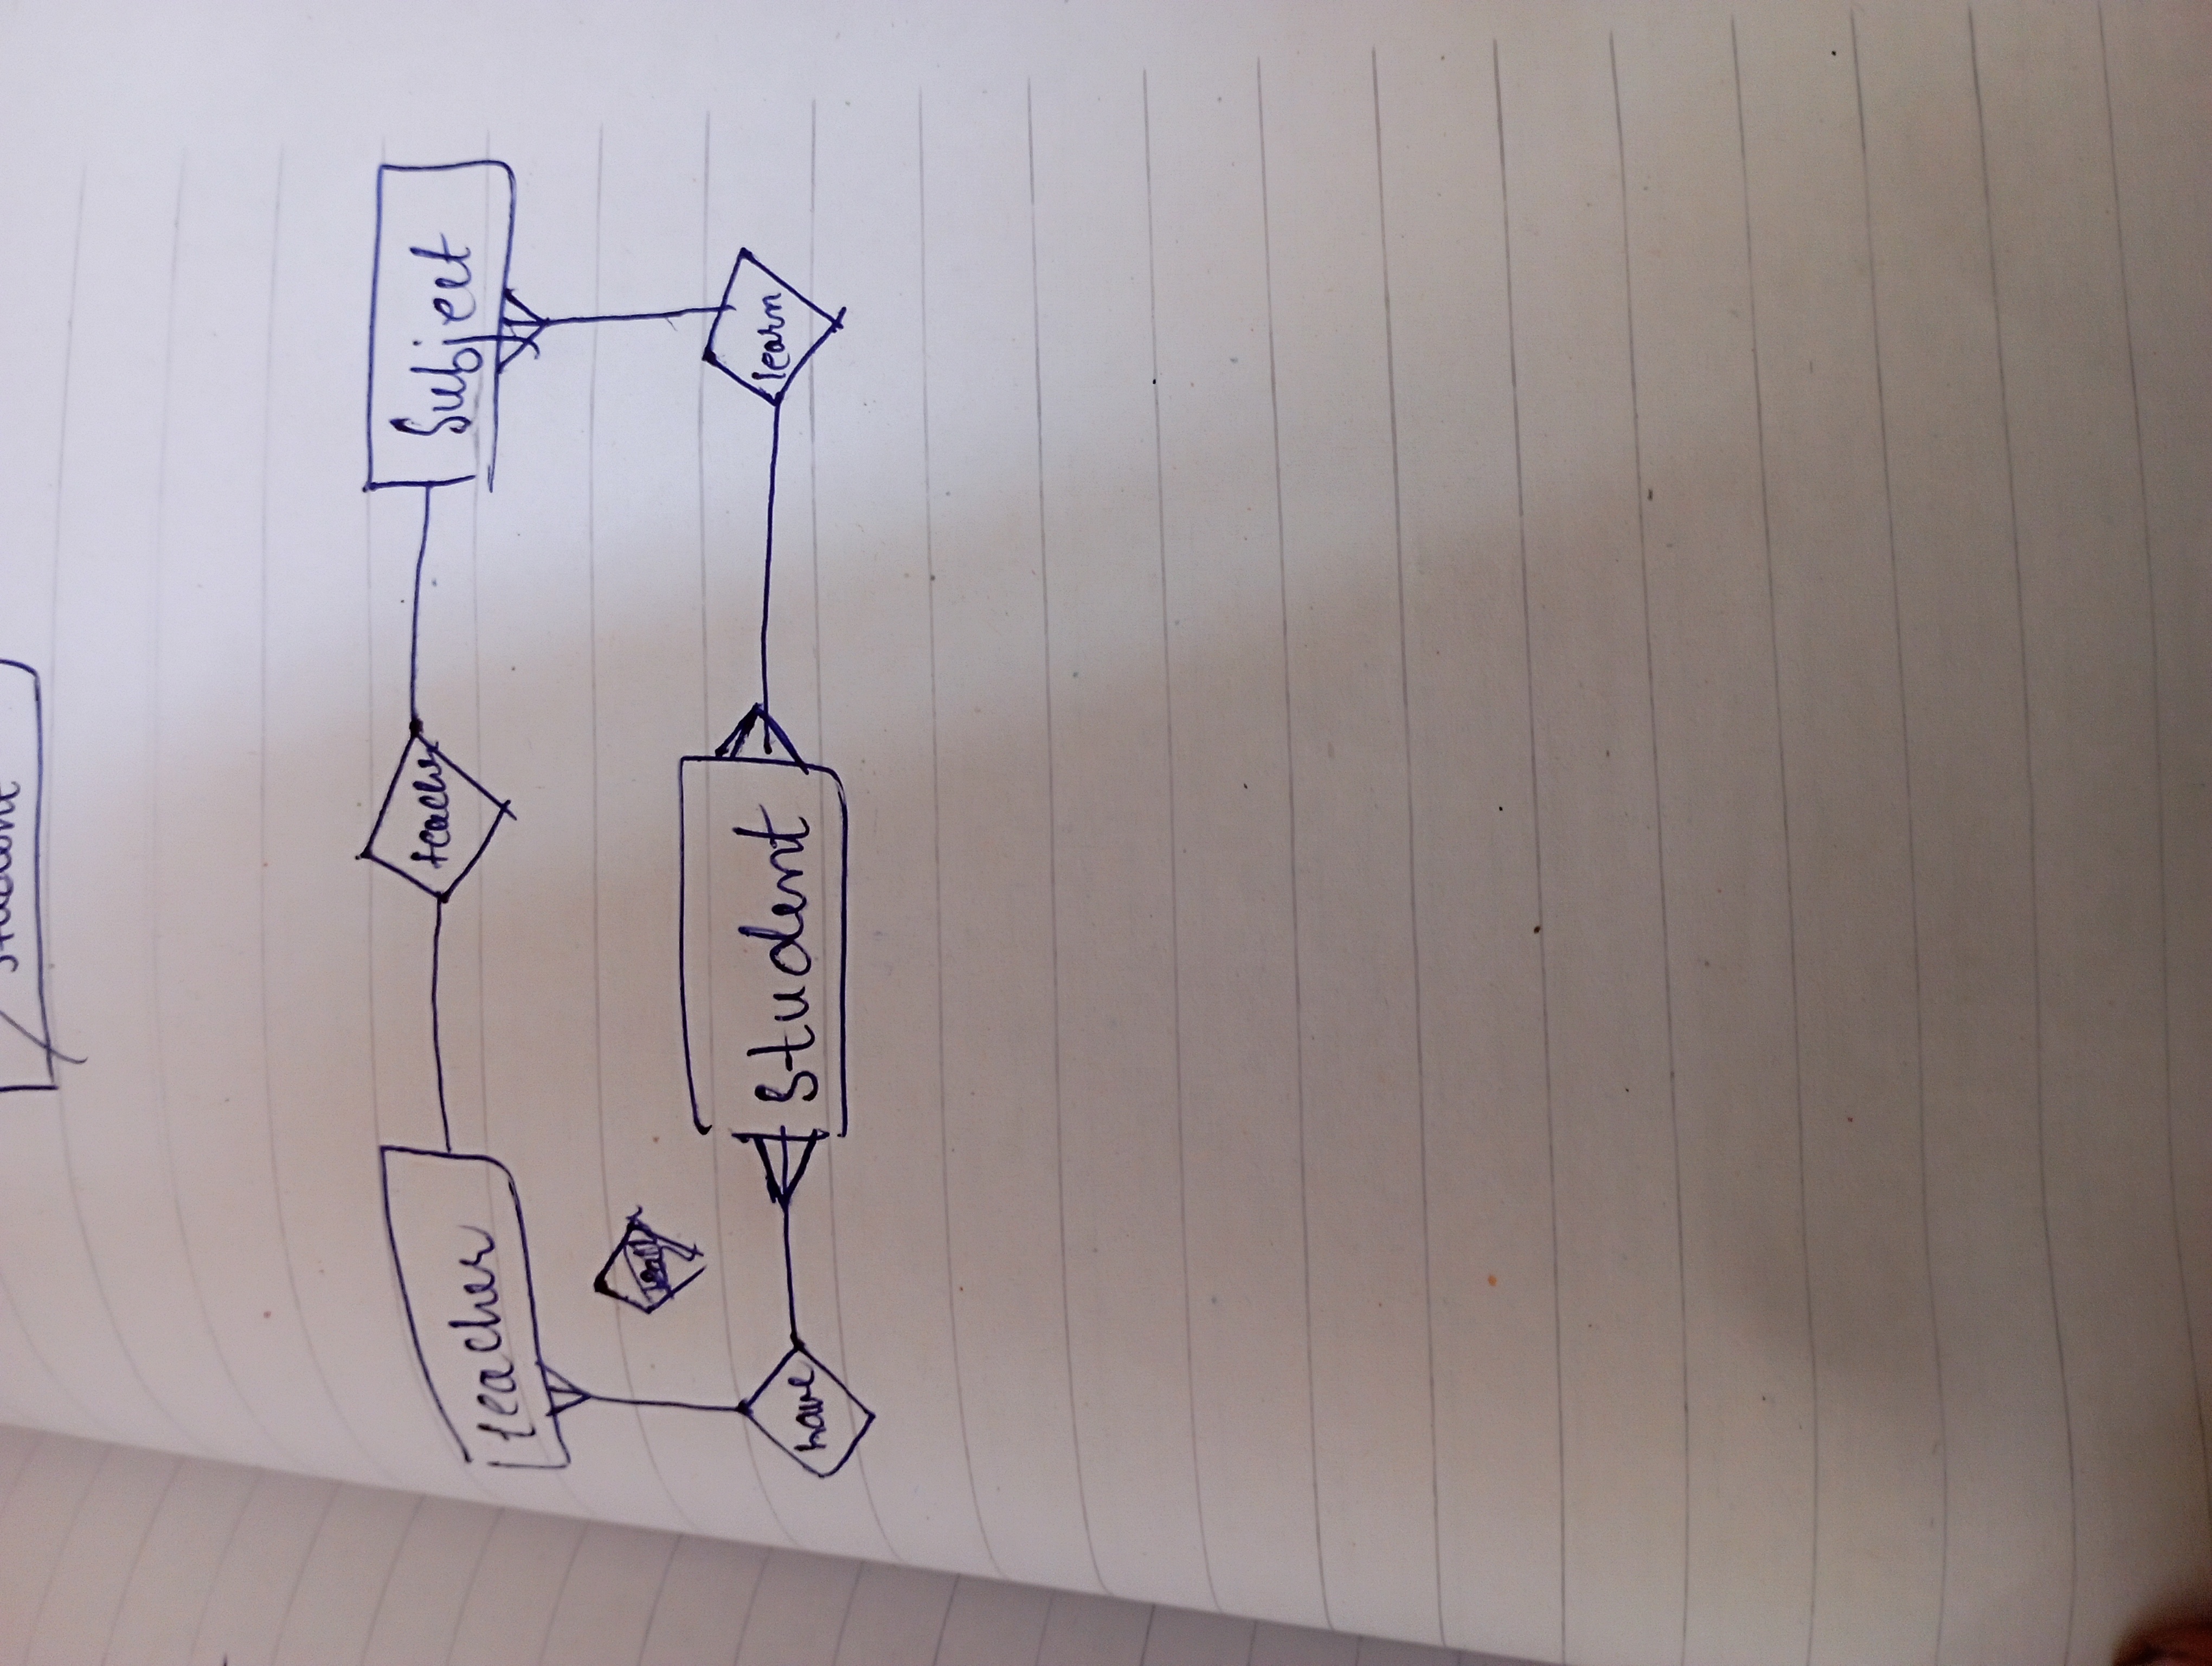 student
teacher
teacher
Subject
student
have
learn